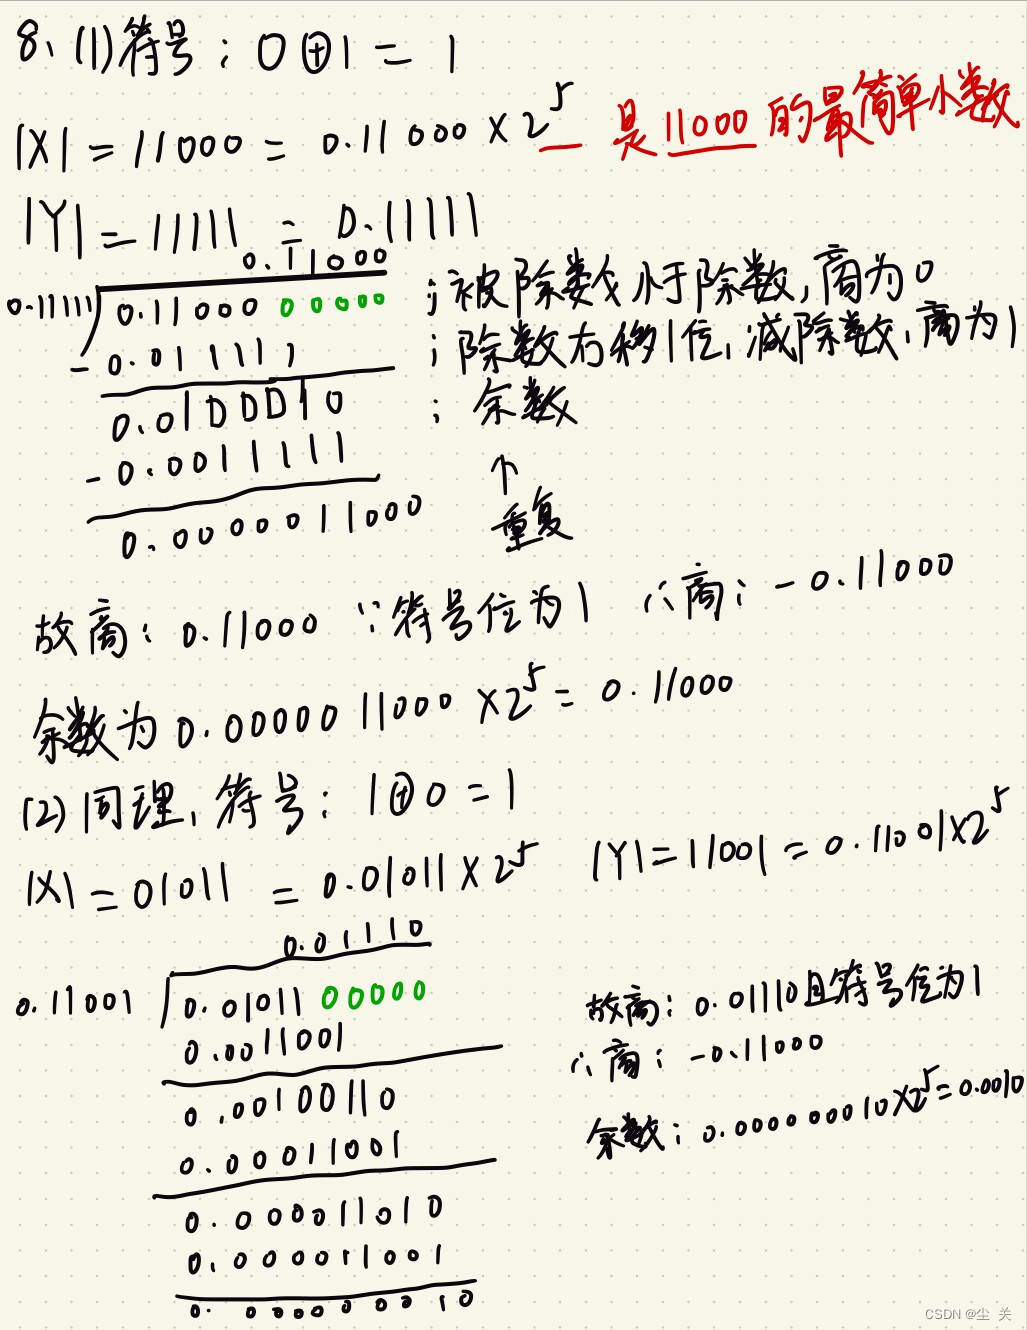 8、(1)符号：0⊕1 = 1
|X| = 11000 = 0.11000 × 2^5 是11000的最简单小数
|Y| = 11111 = 0.11111
0.11000
0.11111 0.11000 00000 ；被除数小于除数，商为0
- 0.011111 ；除数右移1位，减除数，商为1
0.0100010 ；余数
- 0.0011111 ↑
0.0000011000 重复
故商：0.11000 ∵符号位为1 ∴商：-0.11000
余数为0.0000011000 ×2^5 = 0.11000
(2)同理，符号：1⊕0 = 1
|X| = 01011 = 0.01011 × 2^5 |Y| = 11001 = 0.11001×2^5
0.01110
0.11001 0.01011 00000
0.0011001
0.00100110
0.00011001
0.000011010
0.000011001
0.000000010
故商：0.01110且符号位为1
∴商：-0.11000
余数：0.000000010×2^5=0.0010
CSDN @尘 关